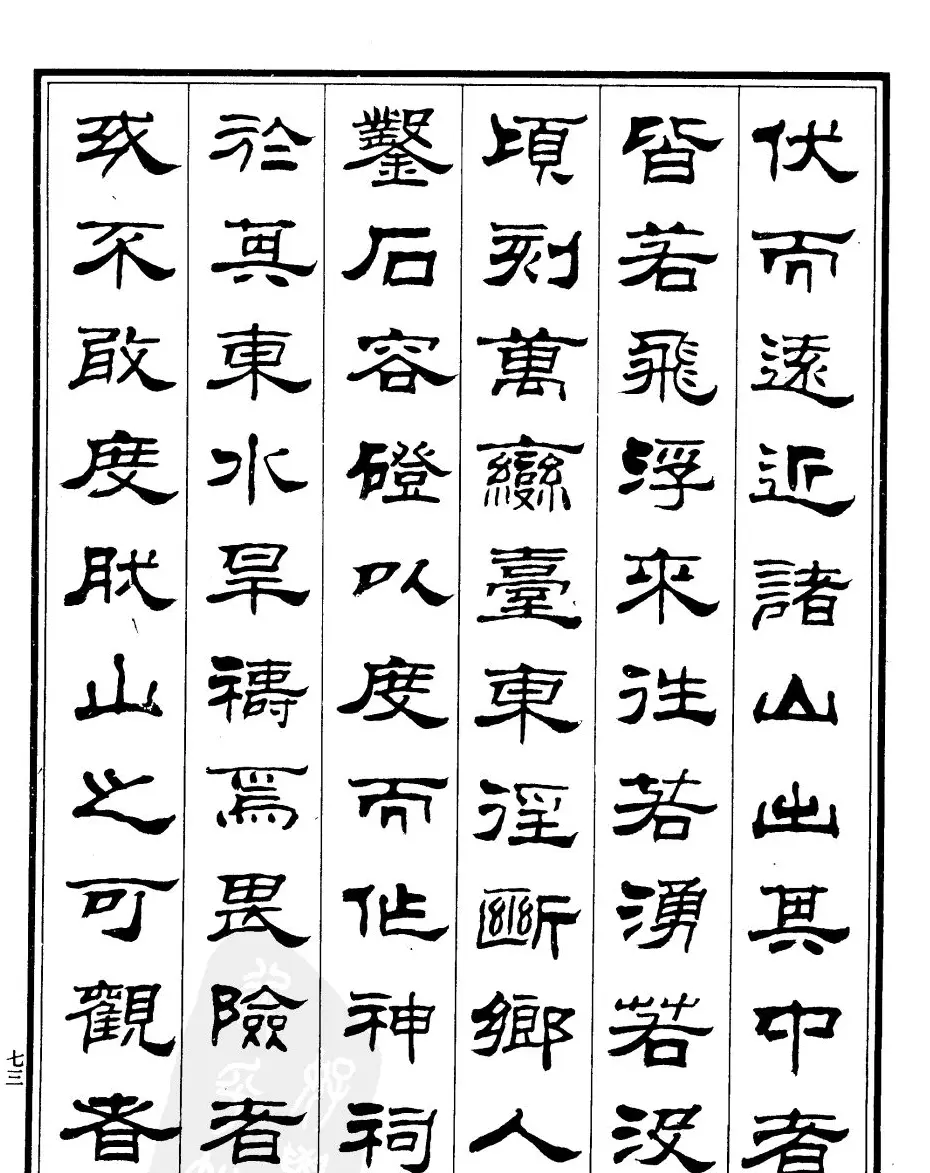 伏而遠近諸山出其中者
皆若飛浮來往若湧若没
頃刻萬變臺東徑斷鄉人
鑿石容磴以度而作神祠
於其東水旱禱焉畏險者
或不敢度然山之可觀者
七三